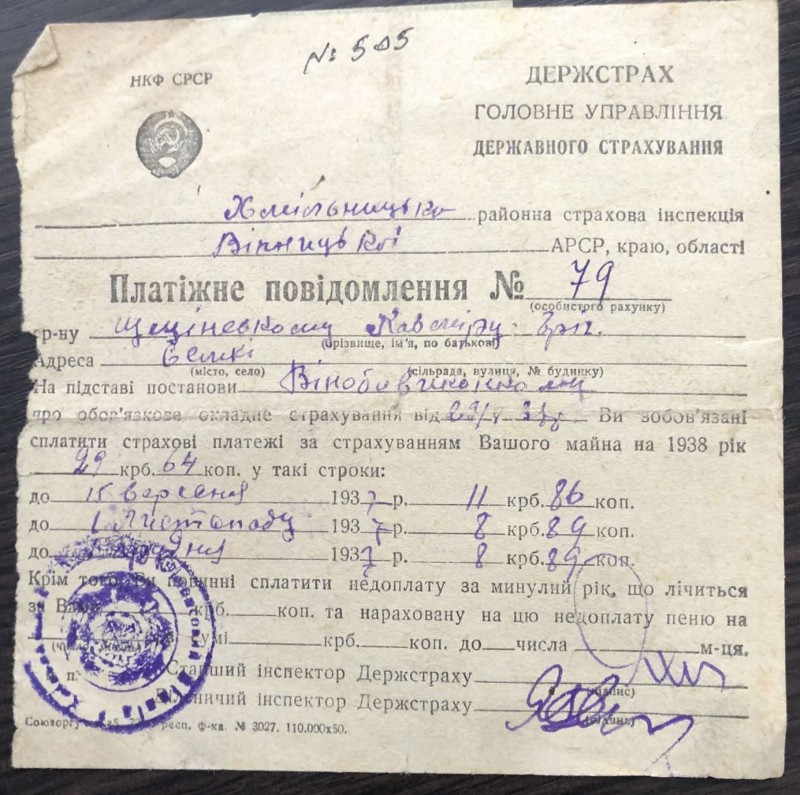 № 505
НКФ СРСР
ДЕРЖСТРАХ
ГОЛОВНЕ УПРАВЛІННЯ
ДЕРЖАВНОГО СТРАХУВАННЯ
Хмільницько районна страхова інспекція
Вінницької АРСР, краю, області
Платіжне повідомлення № 79
(особистого рахунку)
гр-ну
(прізвище, ім'я, по батькові)
Адреса
(місто, село) (сільрада, вулиця, № будинку)
На підставі постанови
про обов'язкове окладне страхування від Ви зобов'язані
сплатити страхові платежі за страхуванням Вашого майна на 1938 рік
29 крб. 64 коп. у такі строки:
до 15 вересня 1937 р. 11 крб. 86 коп.
до 1 Листопаду 1937 р. 8 крб. 89 коп.
до 1937 р. 8 крб. 89 коп.
Крім того Ви повинні сплатити недоплату за минулий рік, що лічиться
за Вами крб. коп. та нараховану на цю недоплату пеню на
сумі крб. коп. до числа м-ця.
Старший інспектор Держстраху
(підпис)
інспектор Держстраху
(підпис)
респ. ф-ка. № 3027. 110.000х50.